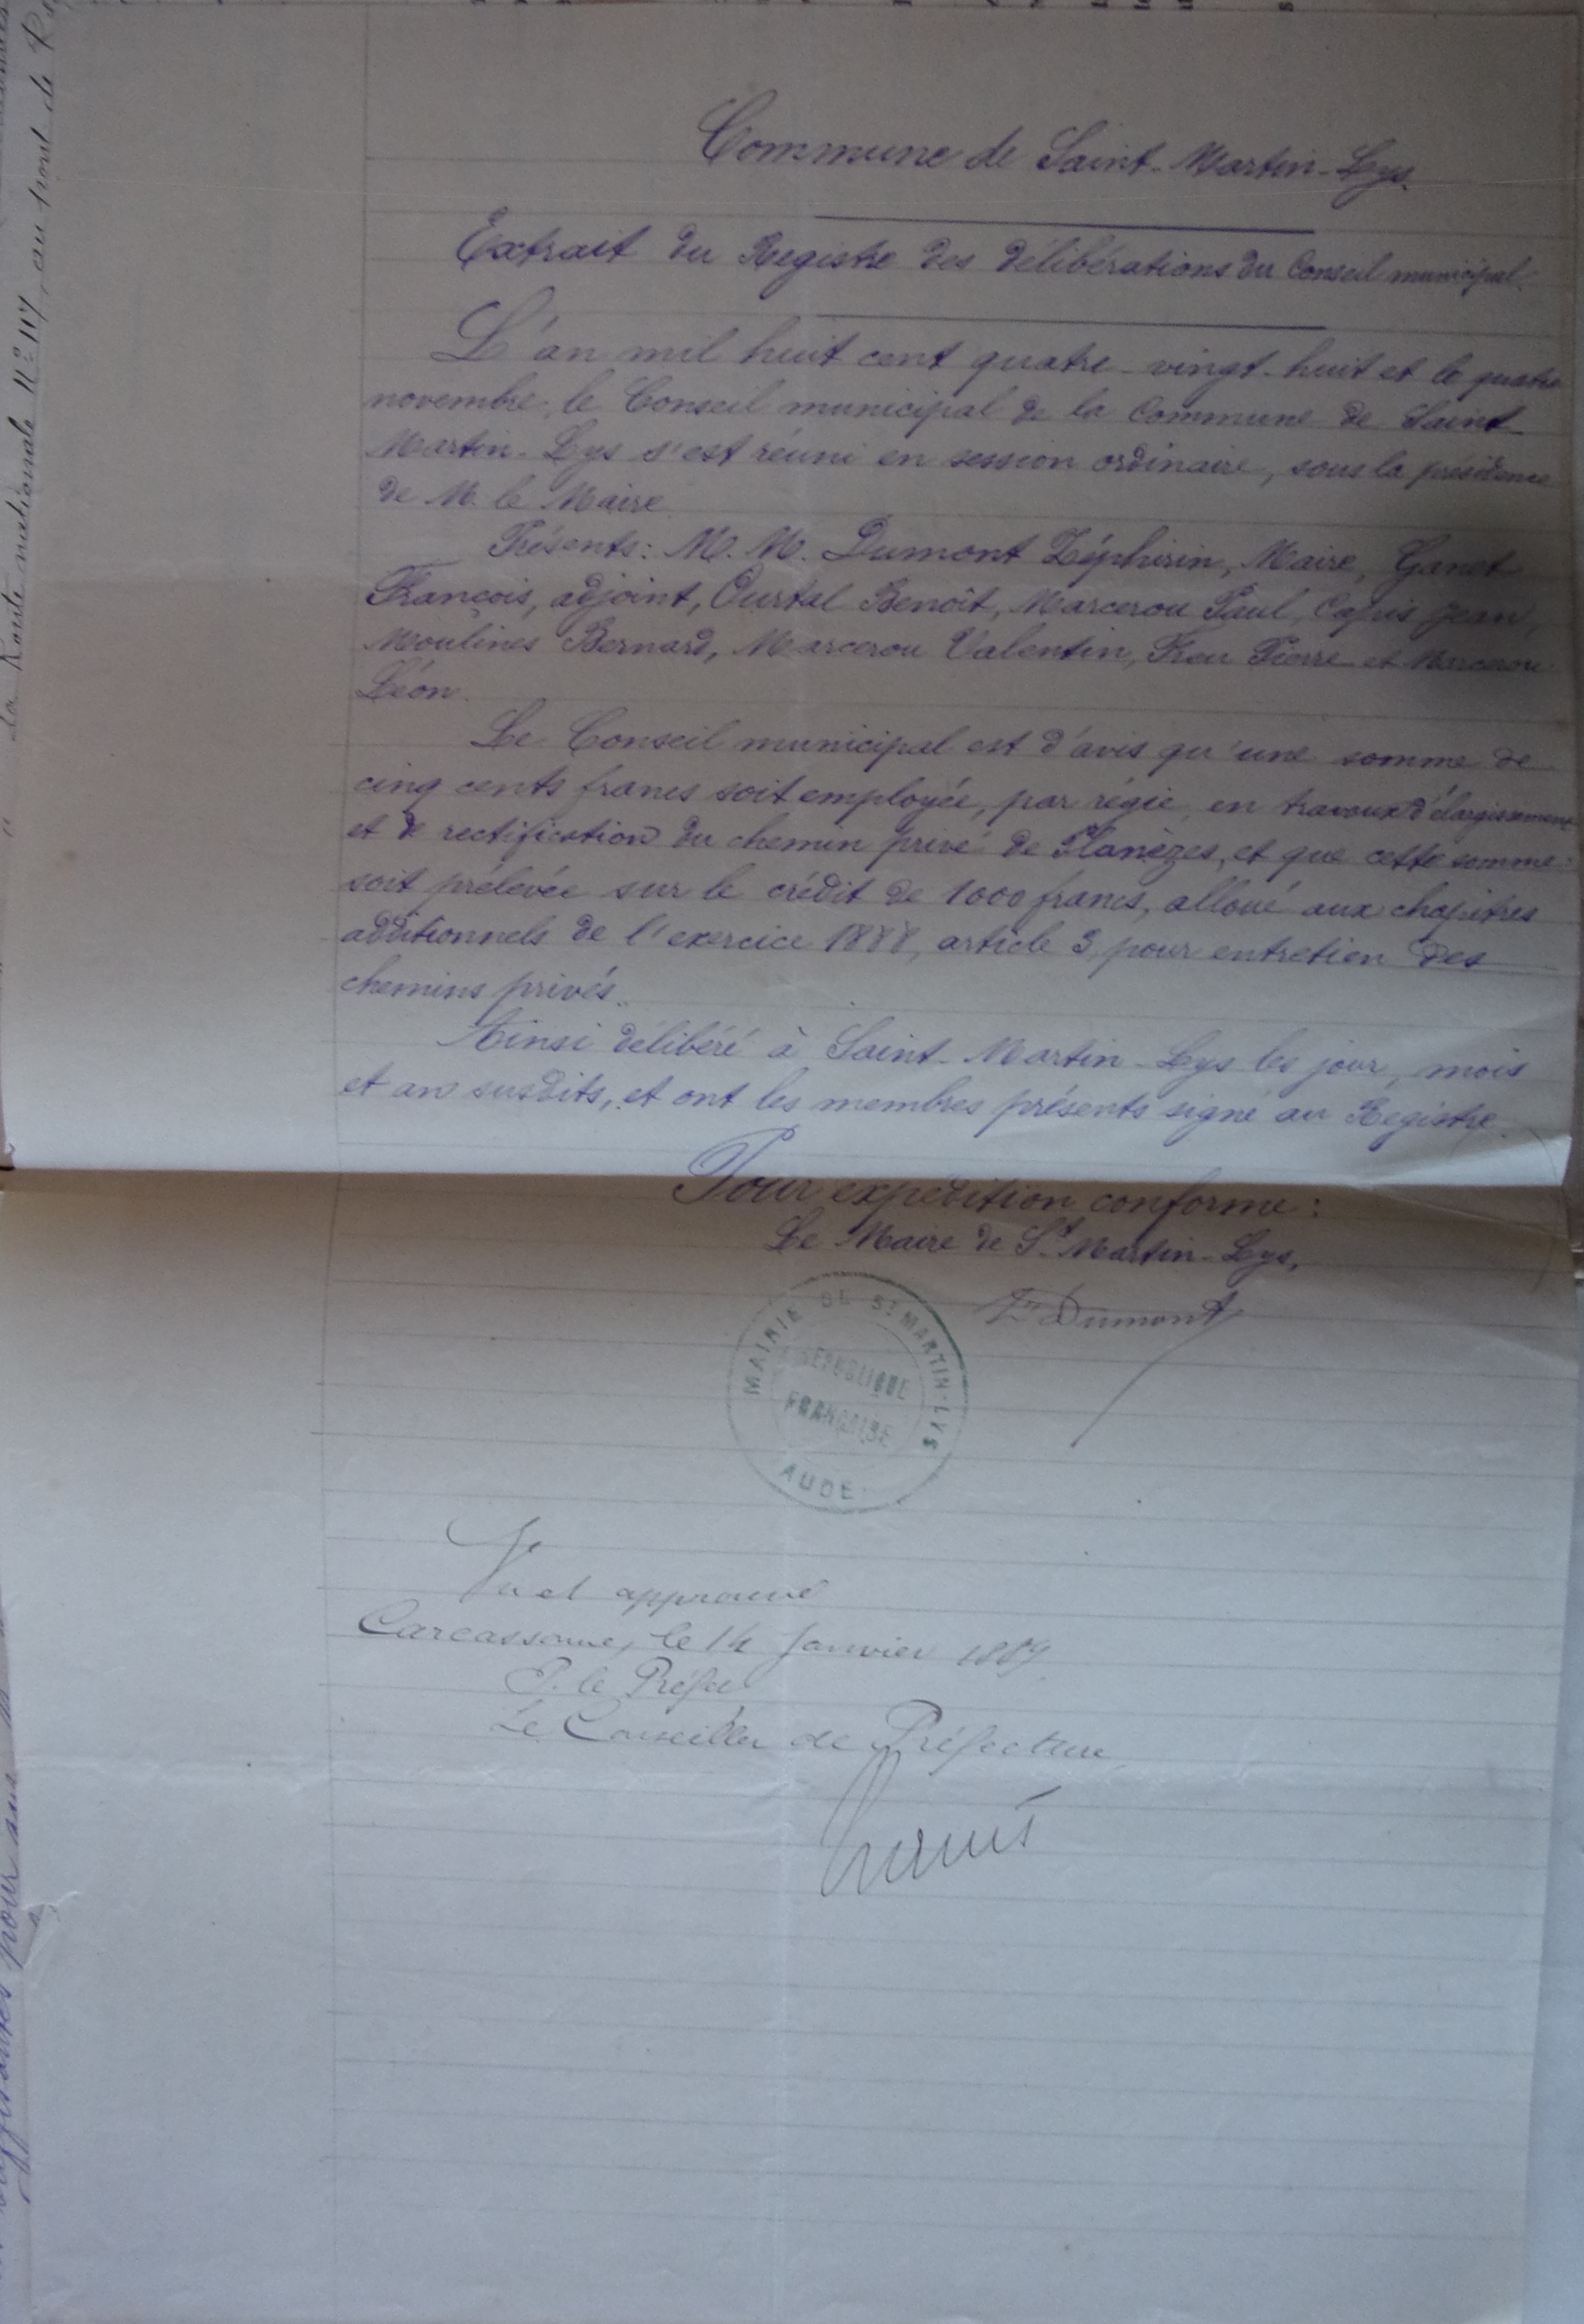 Commune de Saint-Martin-Lys.
Extrait du Registre des délibérations du Conseil municipal.
L'an mil huit cent quatre-vingt-huit et le quatre
novembre, le Conseil municipal de la Commune de Saint
Martin-Lys s'est réuni en session ordinaire, sous la présidence
de M. le Maire.
Présents: M. M. Dumont Zéphirin, Maire, Ganet
François, adjoint, Ourtal Benoît, Marcerou Paul, Jean,
Moulines Bernard, Marcerou Valentin, Pierre et Marcerou
Léon.
Le Conseil municipal est d'avis qu'une somme de
cinq cents francs soit employée, par régie, en travaux d'élargissement
et de rectification du chemin privé de Planèzes, et que cette somme
soit prélevée sur le crédit de 1000 francs, alloué aux chapitres
additionnels de l'exercice 1888, article 3, pour entretien des
chemins privés.
Ainsi délibéré à Saint-Martin-Lys les jour, mois
et an susdits, et ont les membres présents signé au Registre.
Pour expédition conforme:
Le Maire de St Martin-Lys,
Zin Dumont
MAIRIE DE ST MARTIN-LYS
RÉPUBLIQUE
FRANÇAISE
AUDE
Vu et approuvé
Carcassonne, le 14 Janvier 1889
P. le Préfet
Le Conseiller de Préfecture,
la Route nationale No 117, au pont de
pour